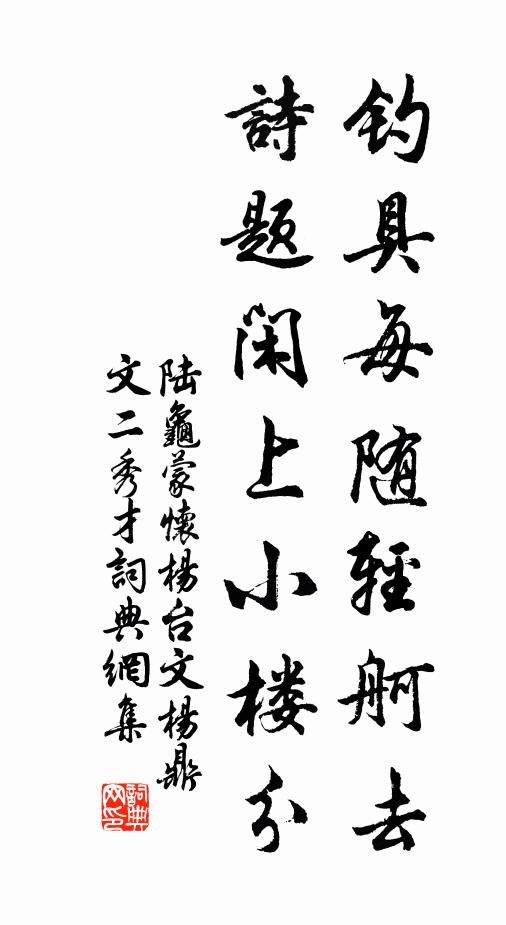 钓具每随轻舸去
詩题闲上小楼分
陆龜蒙懷楊台文楊鼎
文二秀才詞典網集
詞典
网印